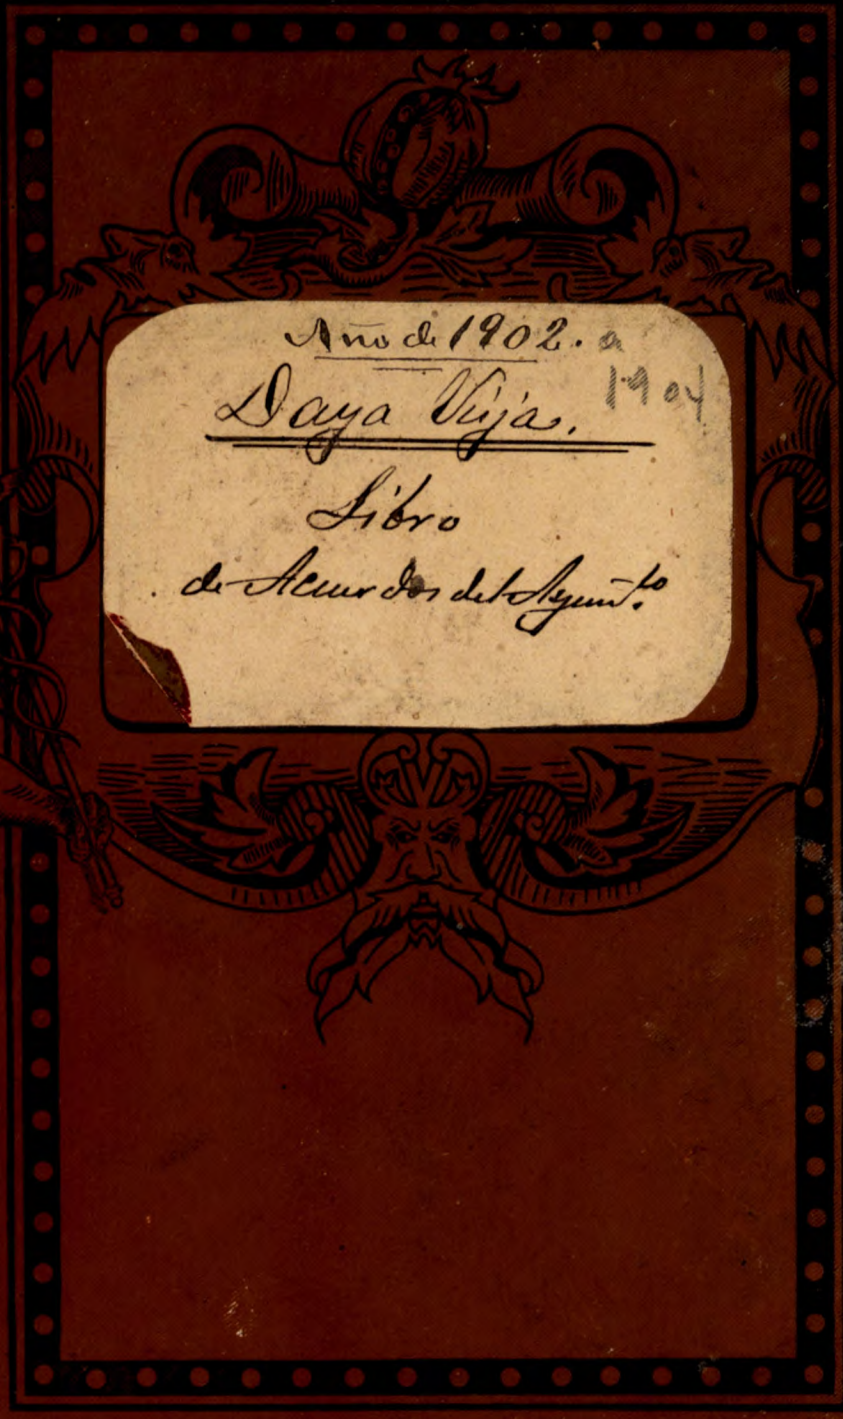 Año de 1902. a
1904
Daya Vieja.
Libro
de Acuerdos del Ayunto.